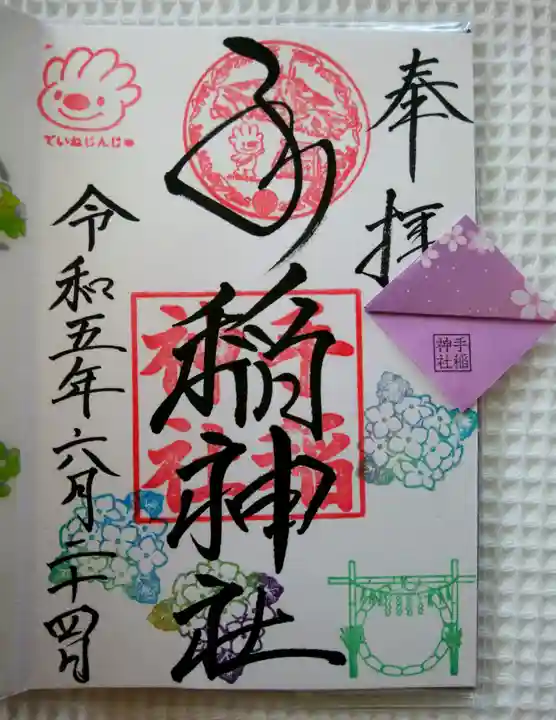 奉拝
手稲神社
手稲
神社
令和五年六月二十四日
ていねじんじゃ
手稲
神社